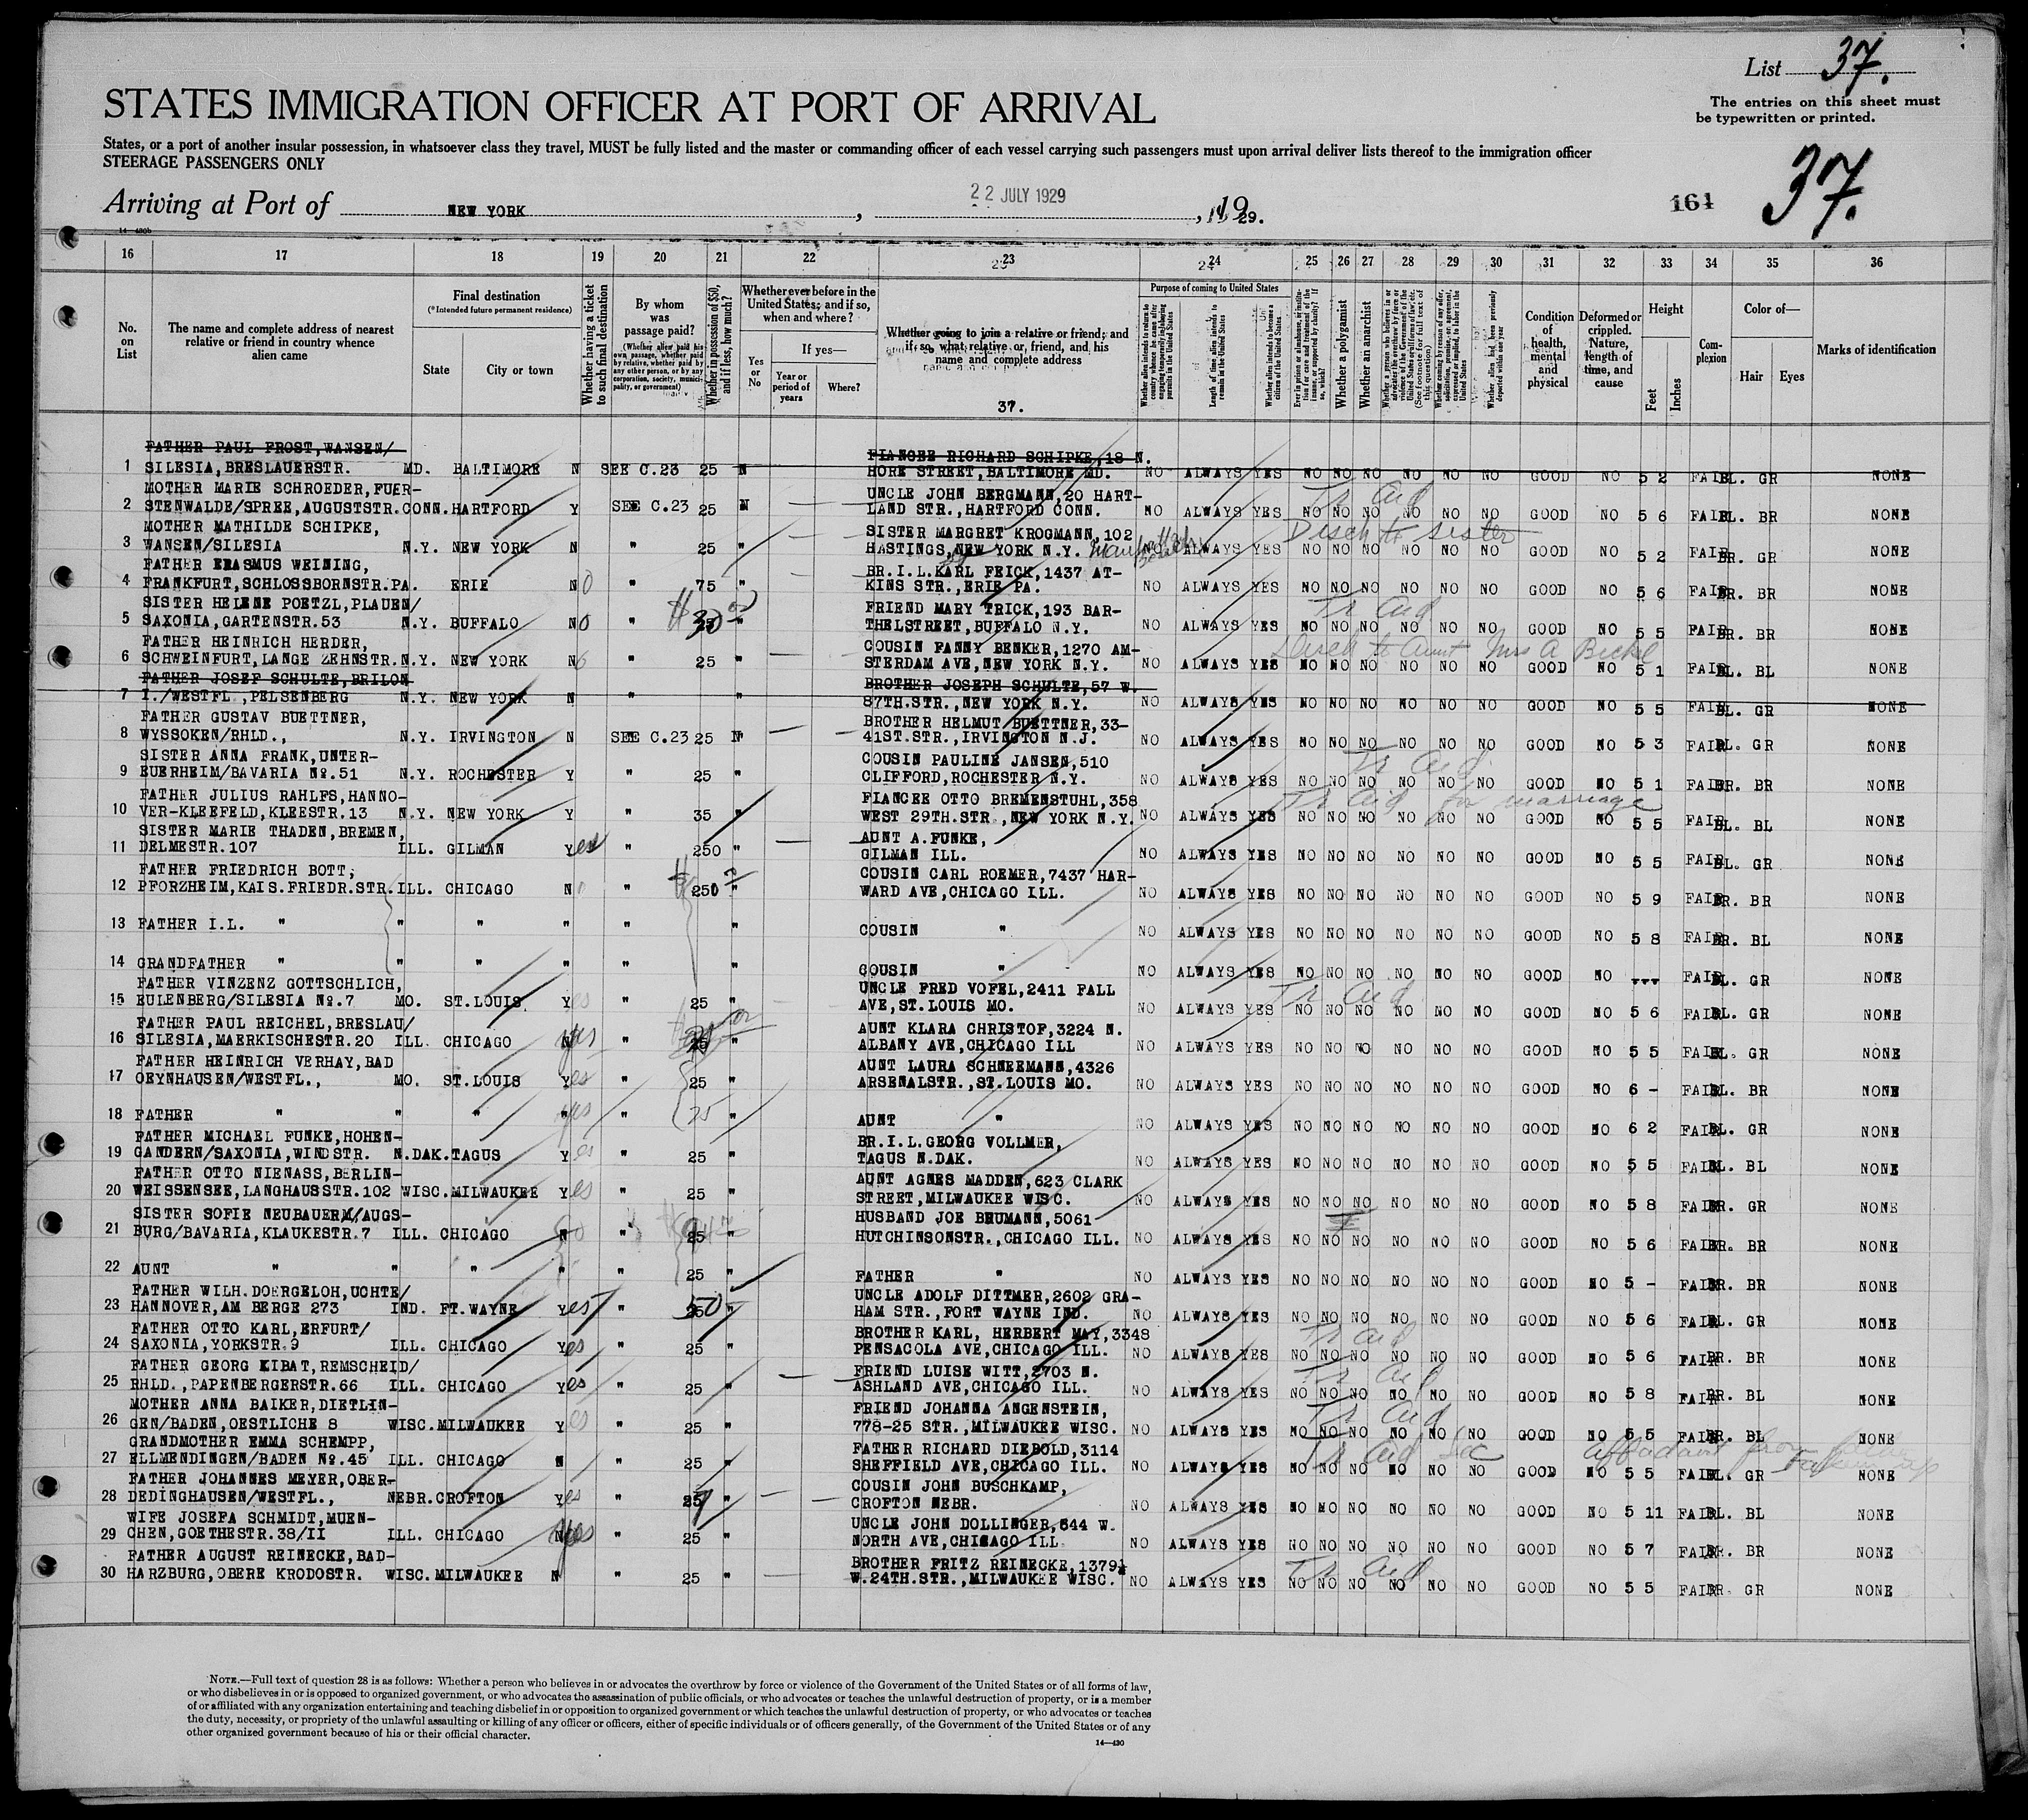 List 37.
The entries on this sheet must
be typewritten or printed.
STATES IMMIGRATION OFFICER AT PORT OF ARRIVAL
States, or a port of another insular possession, in whatsoever class they travel, MUST be fully listed and the master or commanding officer of each vessel carrying such passengers must upon arrival deliver lists thereof to the immigration officer
STEERAGE PASSENGERS ONLY
37.
164
Arriving at Port of NEW YORK, 22 JULY 1929, 1929.
14—430b
16 17 18 19 20 21 22 23 24 25 26 27 28 29 30 31 32 33 34 35 36
No. on List
The name and complete address of nearest relative or friend in country whence alien came
Final destination
(*Intended future permanent residence)
State
City or town
Whether having a ticket to such final destination
By whom was passage paid?
(Whether alien paid his own passage, whether paid by relative, whether paid by any other person, or by any corporation, society, municipality, or government)
Whether in possession of $50, and if less, how much?
Whether ever before in the United States; and if so, when and where?
Yes or No
If yes—
Year or period of years
Where?
Whether going to join a relative or friend; and if so, what relative or friend, and his name and complete address
37.
Purpose of coming to United States
Whether alien intends to return to country whence he came after engaging temporarily in laboring pursuits in the United States
Length of time alien intends to remain in the United States
Whether alien intends to become a citizen of the United States
Ever in prison or almshouse, or institution for care and treatment of the insane, or supported by charity? If so, which?
Whether a polygamist
Whether an anarchist
(See footnote for full text of this question)
Whether alien had been previously deported within one year
Condition of health, mental and physical
Deformed or crippled. Nature, length of time, and cause
Height
Feet
Inches
Complexion
Color of—
Hair
Eyes
Marks of identification
FATHER PAUL FROST,WANSEN/ FIANCEE RICHARD SCHIPKE,18 N.
1 SILESIA,BRESLAUERSTR. MD. BALTIMORE N SEE C.23 25 N HORE STREET,BALTIMORE MD. NO ALWAYS YES NO NO NO NO NO NO GOOD NO 5 2 FAIR BL. GR NONE
MOTHER MARIE SCHROEDER,FUER- UNCLE JOHN BERGMANN,20 HART- Tr Aid
2 STENWALDE/SPREE,AUGUSTSTR. CONN. HARTFORD Y SEE C.23 25 N LAND STR.,HARTFORD CONN. NO ALWAYS YES NO NO NO NO NO NO GOOD NO 5 6 FAIR BL. BR NONE
MOTHER MATHILDE SCHIPKE, SISTER MARGRET KROGMANN,102 Disch to sister
3 WANSEN/SILESIA N.Y. NEW YORK N " 25 " HASTINGS,NEW YORK N.Y. NO ALWAYS YES NO NO NO NO NO NO GOOD NO 5 2 FAIR BR. GR NONE
FATHER ERASMUS WEINING, BR.I.L.KARL FEICK,1437 AT-
4 FRANKFURT,SCHLOSSBORNSTR. PA. ERIE NO " 75 " KINS STR.,ERIE PA. NO ALWAYS YES NO NO NO NO NO NO GOOD NO 5 6 FAIR BR. BR NONE
SISTER HELENE POETZL,PLAUEN/ $30 FRIEND MARY TRICK,193 BAR- Tr Aid
5 SAXONIA,GARTENSTR.53 N.Y. BUFFALO NO " 25 " THELSTREET,BUFFALO N.Y. NO ALWAYS YES NO NO NO NO NO NO GOOD NO 5 5 FAIR BR. BR NONE
FATHER HEINRICH HERDER, COUSIN FANNY BENKER,1270 AM- Disch to Aunt Mrs A Bickel
6 SCHWEINFURT,LANGE ZEHNSTR. N.Y. NEW YORK NO " 25 " STERDAM AVE,NEW YORK N.Y. NO ALWAYS YES NO NO NO NO NO NO GOOD NO 5 1 FAIR BL. BL NONE
FATHER JOSEF SCHULTE,BRILON BROTHER JOSEPH SCHULTE,57 W.
7 I./WESTFL.,PELSENBERG N.Y. NEW YORK N " " 87TH.STR.,NEW YORK N.Y. NO ALWAYS YES NO NO NO NO NO NO GOOD NO 5 5 FAIR BL. GR NONE
FATHER GUSTAV BUETTNER, BROTHER HELMUT BUETTNER,33-
8 WYSSOKEN/RHLD., N.Y. IRVINGTON N SEE C.23 25 N 41ST.STR.,IRVINGTON N.J. NO ALWAYS YES NO NO NO NO NO NO GOOD NO 5 3 FAIR BL. GR NONE
SISTER ANNA FRANK,UNTER- COUSIN PAULINE JANSEN,510 Tr Aid
9 EUERHEIM/BAVARIA No.51 N.Y. ROCHESTER Y " 25 " CLIFFORD,ROCHESTER N.Y. NO ALWAYS YES NO NO NO NO NO NO GOOD NO 5 1 FAIR BR. BR NONE
FATHER JULIUS RAHLFS,HANNO- FIANCEE OTTO BREMENSTUHL,358 Tr Aid for marriage
10 VER-KLEEFELD,KLEESTR.13 N.Y. NEW YORK Y " 35 " WEST 29TH.STR.,NEW YORK N.Y. NO ALWAYS YES NO NO NO NO NO NO GOOD NO 5 5 FAIR BL. BL NONE
SISTER MARIE THADEN,BREMEN, AUNT A.FUNKE,
11 DELMESTR.107 ILL. GILMAN Yes " 250 " GILMAN ILL. NO ALWAYS YES NO NO NO NO NO NO GOOD NO 5 5 FAIR BL. GR NONE
FATHER FRIEDRICH BOTT, COUSIN CARL ROEMER,7437 HAR-
12 PFORZHEIM,KAIS.FRIEDR.STR. ILL. CHICAGO N " 250 " WARD AVE,CHICAGO ILL. NO ALWAYS YES NO NO NO NO NO NO GOOD NO 5 9 FAIR BR. BR NONE
13 FATHER I.L. " " " " " " COUSIN " NO ALWAYS YES NO NO NO NO NO NO GOOD NO 5 8 FAIR BR. BL NONE
14 GRANDFATHER " " " " " " COUSIN " NO ALWAYS YES NO NO NO NO NO NO GOOD NO FAIR BL. GR NONE
FATHER VINZENZ GOTTSCHLICH, UNCLE FRED VOFEL,2411 FALL Tr Aid
15 EULENBERG/SILESIA No.7 MO. ST.LOUIS Yes " 25 " AVE,ST.LOUIS MO. NO ALWAYS YES NO NO NO NO NO NO GOOD NO 5 6 FAIR BL. GR NONE
FATHER PAUL REICHEL,BRESLAU/ AUNT KLARA CHRISTOF,3224 N.
16 SILESIA,MAERKISCHESTR.20 ILL. CHICAGO N yes " 25 " ALBANY AVE,CHICAGO ILL NO ALWAYS YES NO NO NO NO NO NO GOOD NO 5 5 FAIR BL. GR NONE
FATHER HEINRICH VERHAY,BAD AUNT LAURA SCHNEEMANN,4326
17 OEYNHAUSEN/WESTFL., MO. ST.LOUIS Yes " 25 " ARSENALSTR.,ST.LOUIS MO. NO ALWAYS YES NO NO NO NO NO NO GOOD NO 6 - FAIR BL. BR NONE
18 FATHER " " " " yes " 25 " AUNT " NO ALWAYS YES NO NO NO NO NO NO GOOD NO 6 2 FAIR BL. GR NONE
FATHER MICHAEL FUNKE,HOHEN- BR.I.L.GEORG VOLLMER,
19 GANDERN/SAXONIA,WINDSTR. N.DAK. TAGUS Yes " 25 " TAGUS N.DAK. NO ALWAYS YES NO NO NO NO NO NO GOOD NO 5 5 FAIR BL. BL NONE
FATHER OTTO NIENASS,BERLIN- AUNT AGNES MADDEN,623 CLARK
20 WEISSENSEE,LANGHAUSSTR.102 WISC. MILWAUKEE Yes " 25 " STREET,MILWAUKEE WISC. NO ALWAYS YES NO NO NO NO NO NO GOOD NO 5 8 FAIR BR. GR NONE
SISTER SOFIE NEUBAUERM//AUGS- HUSBAND JOE BRUMANN,5061
21 BURG/BAVARIA,KLAUKESTR.7 ILL. CHICAGO N " 25 " HUTCHINSONSTR.,CHICAGO ILL. NO ALWAYS YES NO NO NO NO NO NO GOOD NO 5 6 FAIR BR. BR NONE
22 AUNT " " " " " 25 " FATHER " NO ALWAYS YES NO NO NO NO NO NO GOOD NO 5 - FAIR BR. BR NONE
FATHER WILH.DOERGELOH,UCHTE/ UNCLE ADOLF DITTMER,2602 GRA-
23 HANNOVER,AM BERGE 273 IND. FT.WAYNE Yes " 50 " HAM STR.,FORT WAYNE IND. NO ALWAYS YES NO NO NO NO NO NO GOOD NO 5 6 FAIR BL. GR NONE
FATHER OTTO KARL,ERFURT/ BROTHER KARL, HERBERT MAY,3348 Tr Aid
24 SAXONIA,YORKSTR.9 ILL. CHICAGO Yes " 25 " PENSACOLA AVE,CHICAGO ILL. NO ALWAYS YES NO NO NO NO NO NO GOOD NO 5 6 FAIR BR. BR NONE
FATHER GEORG KIBAT,REMSCHEID/ FRIEND LUISE WITT,2703 N. Tr Aid
25 RHLD.,PAPENBERGERSTR.66 ILL. CHICAGO Yes " 25 " ASHLAND AVE,CHICAGO ILL. NO ALWAYS YES NO NO NO NO NO NO GOOD NO 5 8 FAIR BR. BL NONE
MOTHER ANNA BAIKER,DIETLIN- FRIEND JOHANNA ANGENSTEIN, Tr Aid
26 GEN/BADEN,OESTLICHE 8 WISC. MILWAUKEE Yes " 25 " 778-25 STR.,MILWAUKEE WISC. NO ALWAYS YES NO NO NO NO NO NO GOOD NO 5 5 FAIR BL. BL NONE
GRANDMOTHER EMMA SCHEMPP, FATHER RICHARD DIEBOLD,3114 Tr Aid Sec affidavit from
27 ELLMENDINGEN/BADEN No.45 ILL. CHICAGO N " 25 " SHEFFIELD AVE,CHICAGO ILL. NO ALWAYS YES NO NO NO NO NO NO GOOD NO 5 5 FAIR BL. GR NONE
FATHER JOHANNES MEYER,OBER- COUSIN JOHN BUSCHKAMP,
28 DEDINGHAUSEN/WESTFL., NEBR. CROFTON Yes " 25 " CROFTON NEBR. NO ALWAYS YES NO NO NO NO NO NO GOOD NO 5 11 FAIR BL. BL NONE
WIFE JOSEFA SCHMIDT,MUEN- UNCLE JOHN DOLLINGER,544 W.
29 CHEN,GOETHESTR.38/II ILL. CHICAGO N yes " 25 " NORTH AVE,CHICAGO ILL. NO ALWAYS YES NO NO NO NO NO NO GOOD NO 5 7 FAIR BR. BR NONE
FATHER AUGUST REINECKE,BAD- BROTHER FRITZ REINECKE,1379½ Tr Aid
30 HARZBURG,OBERE KRODOSTR. WISC. MILWAUKEE N " 25 " W.24TH.STR.,MILWAUKEE WISC. NO ALWAYS YES NO NO NO NO NO NO GOOD NO 5 5 FAIR BR. GR NONE
NOTE.—Full text of question 28 is as follows: Whether a person who believes in or advocates the overthrow by force or violence of the Government of the United States or of all forms of law,
or who disbelieves in or is opposed to organized government, or who advocates the assassination of public officials, or who advocates or teaches the unlawful destruction of property, or is a member
of or affiliated with any organization entertaining and teaching disbelief in or opposition to organized government or which teaches the unlawful destruction of property, or who advocates or teaches
the duty, necessity, or propriety of the unlawful assaulting or killing of any officer or officers, either of specific individuals or of officers generally, of the Government of the United States or of any
other organized government because of his or their official character.
14—430